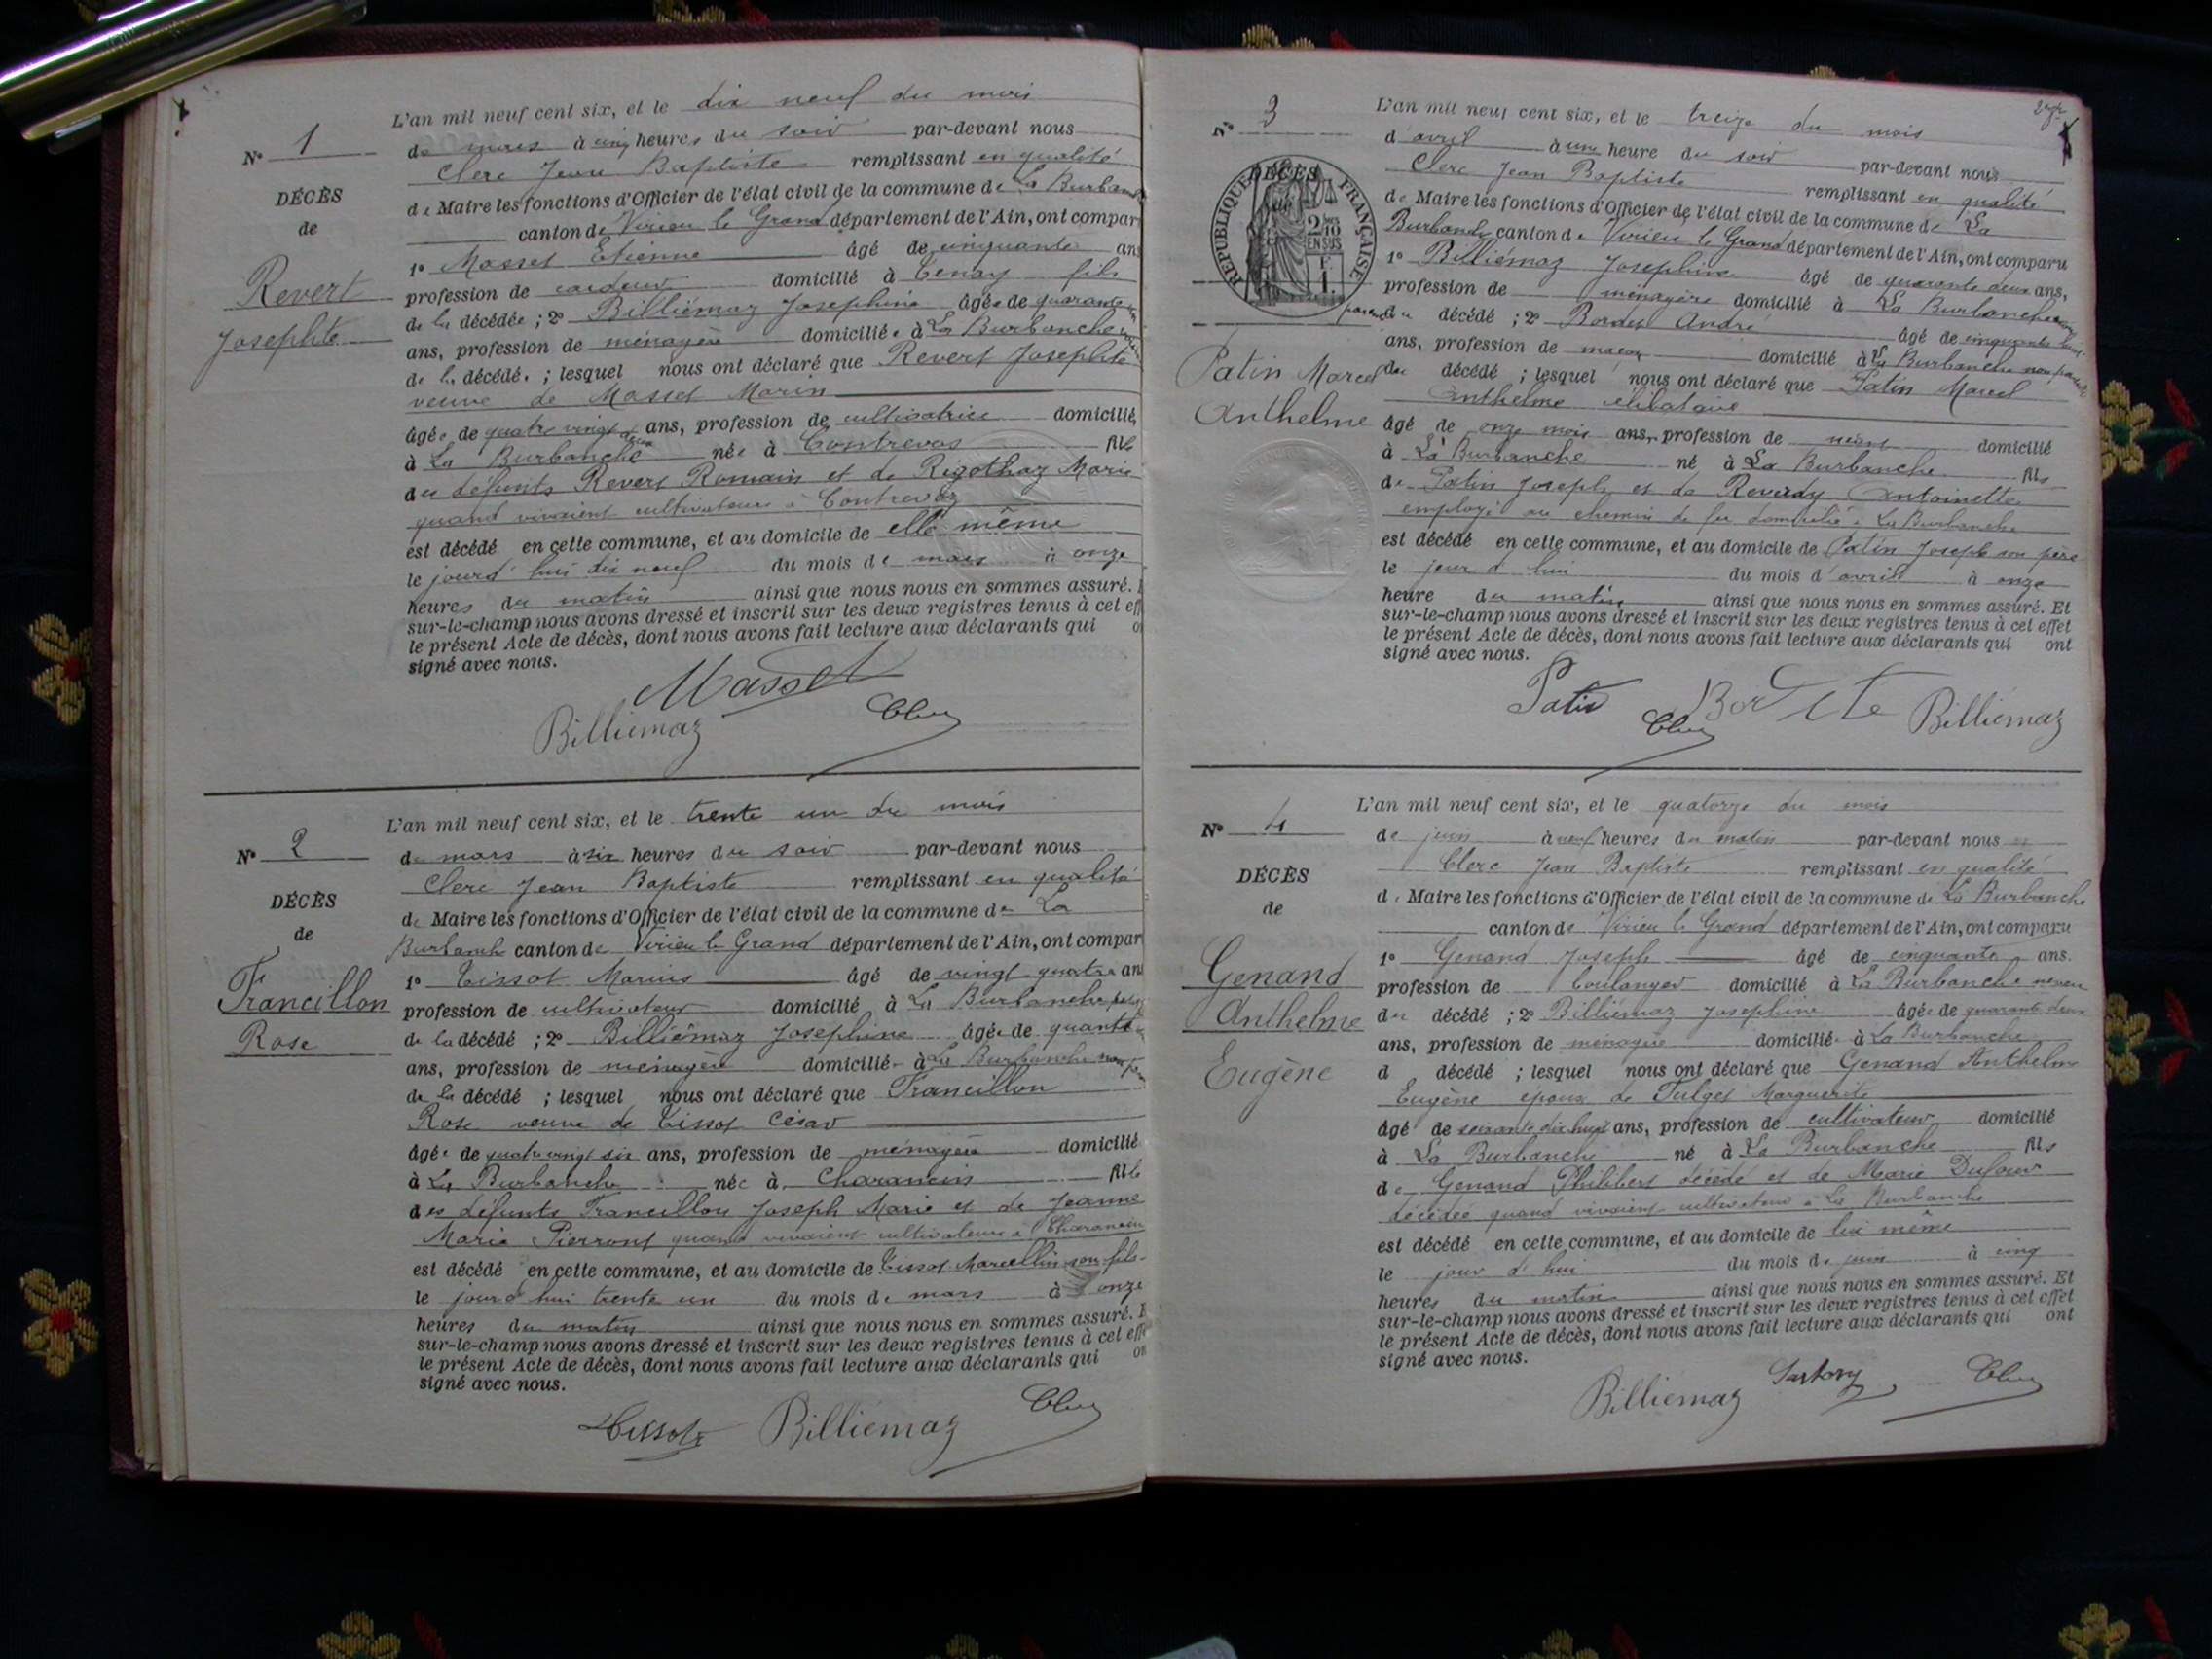 N° 1
DÉCÈS
de
Revert
Josephte
L'an mil neuf cent six, et le dix neuf du mois
de mars à cinq heures du soir par-devant nous
Clerc Jean Baptiste remplissant en qualité
de Maire les fonctions d'Officier de l'état civil de la commune de La Burban
canton de Virieu le Grand département de l'Ain, ont compar
1° Masset Etienne âgé de cinquante ans
profession de cardeur domicilié à Tenay fils
de la décédée ; 2° Billiémaz Josephine âgée de quarante
ans, profession de ménagère domiciliée à La Burbanche
de la décédée ; lesquel nous ont déclaré que Revert Josephte
veuve de Masset Marin
âgée de quatre vingt deux ans, profession de cultivatrice domicilié
à La Burbanche née à Contrevoz fille
des défunts Revert Romain et de Rigothaz Marie
quand vivaient cultivateurs à Contrevoz
est décédé en cette commune, et au domicile de elle même
le jourd'hui dix neuf du mois de mars à onze
heures du matin ainsi que nous nous en sommes assuré.
sur-le-champ nous avons dressé et inscrit sur les deux registres tenus à cet eff
le présent Acte de décès, dont nous avons fait lecture aux déclarants qui o
signé avec nous.
Masset
Billiemaz Clerc
N° 2
DÉCÈS
de
Francillon
Rose
L'an mil neuf cent six, et le trente un du mois
de mars à six heures du soir par-devant nous
Clerc Jean Baptiste remplissant en qualité
de Maire les fonctions d'Officier de l'état civil de la commune de La
Burbanche canton de Virieu le Grand département de l'Ain, ont compar
1° Tissot Marius âgé de vingt quatre an
profession de cultivateur domicilié à La Burbanche
de la décédé ; 2° Billiémaz Josephine âgée de
ans, profession de ménagère domicilié à La Burbanche non
de la décédé ; lesquel nous ont déclaré que Francillon
Rose veuve de Tissot César
âgée de quatre vingt six ans, profession de ménagère domicilié
à La Burbanche née à Charancin fille
des défunts Francillon Joseph Marie et de Jeanne
Marie Pierront quand vivaient cultivateurs à Charancin
est décédé en cette commune, et au domicile de Tissot Marcellin son fils
le jourd'hui trente un du mois de mars à onze
heures du matin ainsi que nous nous en sommes assuré. E
sur-le-champ nous avons dressé et inscrit sur les deux registres tenus à cet effe
le présent Acte de décès, dont nous avons fait lecture aux déclarants qui on
signé avec nous.
Tissot Billiémaz Clerc
N° 3
DÉCÈS
RÉPUBLIQUE FRANÇAISE
2/10 EN SUS
Patin Marcel
Anthelme
L'an mil neuf cent six, et le treize du mois
d'avril à une heure du soir par-devant nous
Clerc Jean Baptiste remplissant en qualité
de Maire les fonctions d'Officier de l'état civil de la commune de La
Burbanche canton de Virieu le Grand département de l'Ain, ont comparu
1° Billiémaz Josephine âgé de quarante deux ans,
profession de ménagère domicilié à La Burbanche non
parent du décédé ; 2° Bordet André âgé de cinquante
ans, profession de maçon domicilié à La Burbanche non parent
du décédé ; lesquel nous ont déclaré que Patin Marcel
Anthelme célibataire
âgé de onze mois ans, profession de néant domicilié
à La Burbanche né à La Burbanche fils
de Patin Joseph et de Reverdy Antoinette
employé au chemin de fer domicilié à La Burbanche
est décédé en cette commune, et au domicile de Patin Joseph son père
le jour d'hui du mois d'avril à onze
heure du matin ainsi que nous nous en sommes assuré. Et
sur-le-champ nous avons dressé et inscrit sur les deux registres tenus à cet effet
le présent Acte de décès, dont nous avons fait lecture aux déclarants qui ont
signé avec nous.
Patin Clerc Billiémaz
N° 4
DÉCÈS
de
Genand
Anthelme
Eugène
L'an mil neuf cent six, et le quatorze du mois
de juin à neuf heures du matin par-devant nous
Clerc Jean Baptiste remplissant en qualité
de Maire les fonctions d'Officier de l'état civil de la commune de La Burbanche
canton de Virieu le Grand département de l'Ain, ont comparu
1° Genand Joseph âgé de cinquante ans.
profession de boulanger domicilié à La Burbanche neveu
du décédé ; 2° Billiémaz Josephine âgée de quarante deux
ans, profession de ménagère domicilié à La Burbanche
d décédé ; lesquel nous ont déclaré que Genand Anthelme
Eugène époux de Fulget Marguerite
âgé de soixante dix huit ans, profession de cultivateur domicilié
à La Burbanche né à La Burbanche fils
de Genand Philibert décédé et de Marie Dufour
décédée quand vivaient cultivateurs à La Burbanche
est décédé en cette commune, et au domicile de lui même
le jour d'hui du mois de juin à cinq
heures du matin ainsi que nous nous en sommes assuré. Et
sur-le-champ nous avons dressé et inscrit sur les deux registres tenus à cet effet
le présent Acte de décès, dont nous avons fait lecture aux déclarants qui ont
signé avec nous.
Billiemaz Clerc